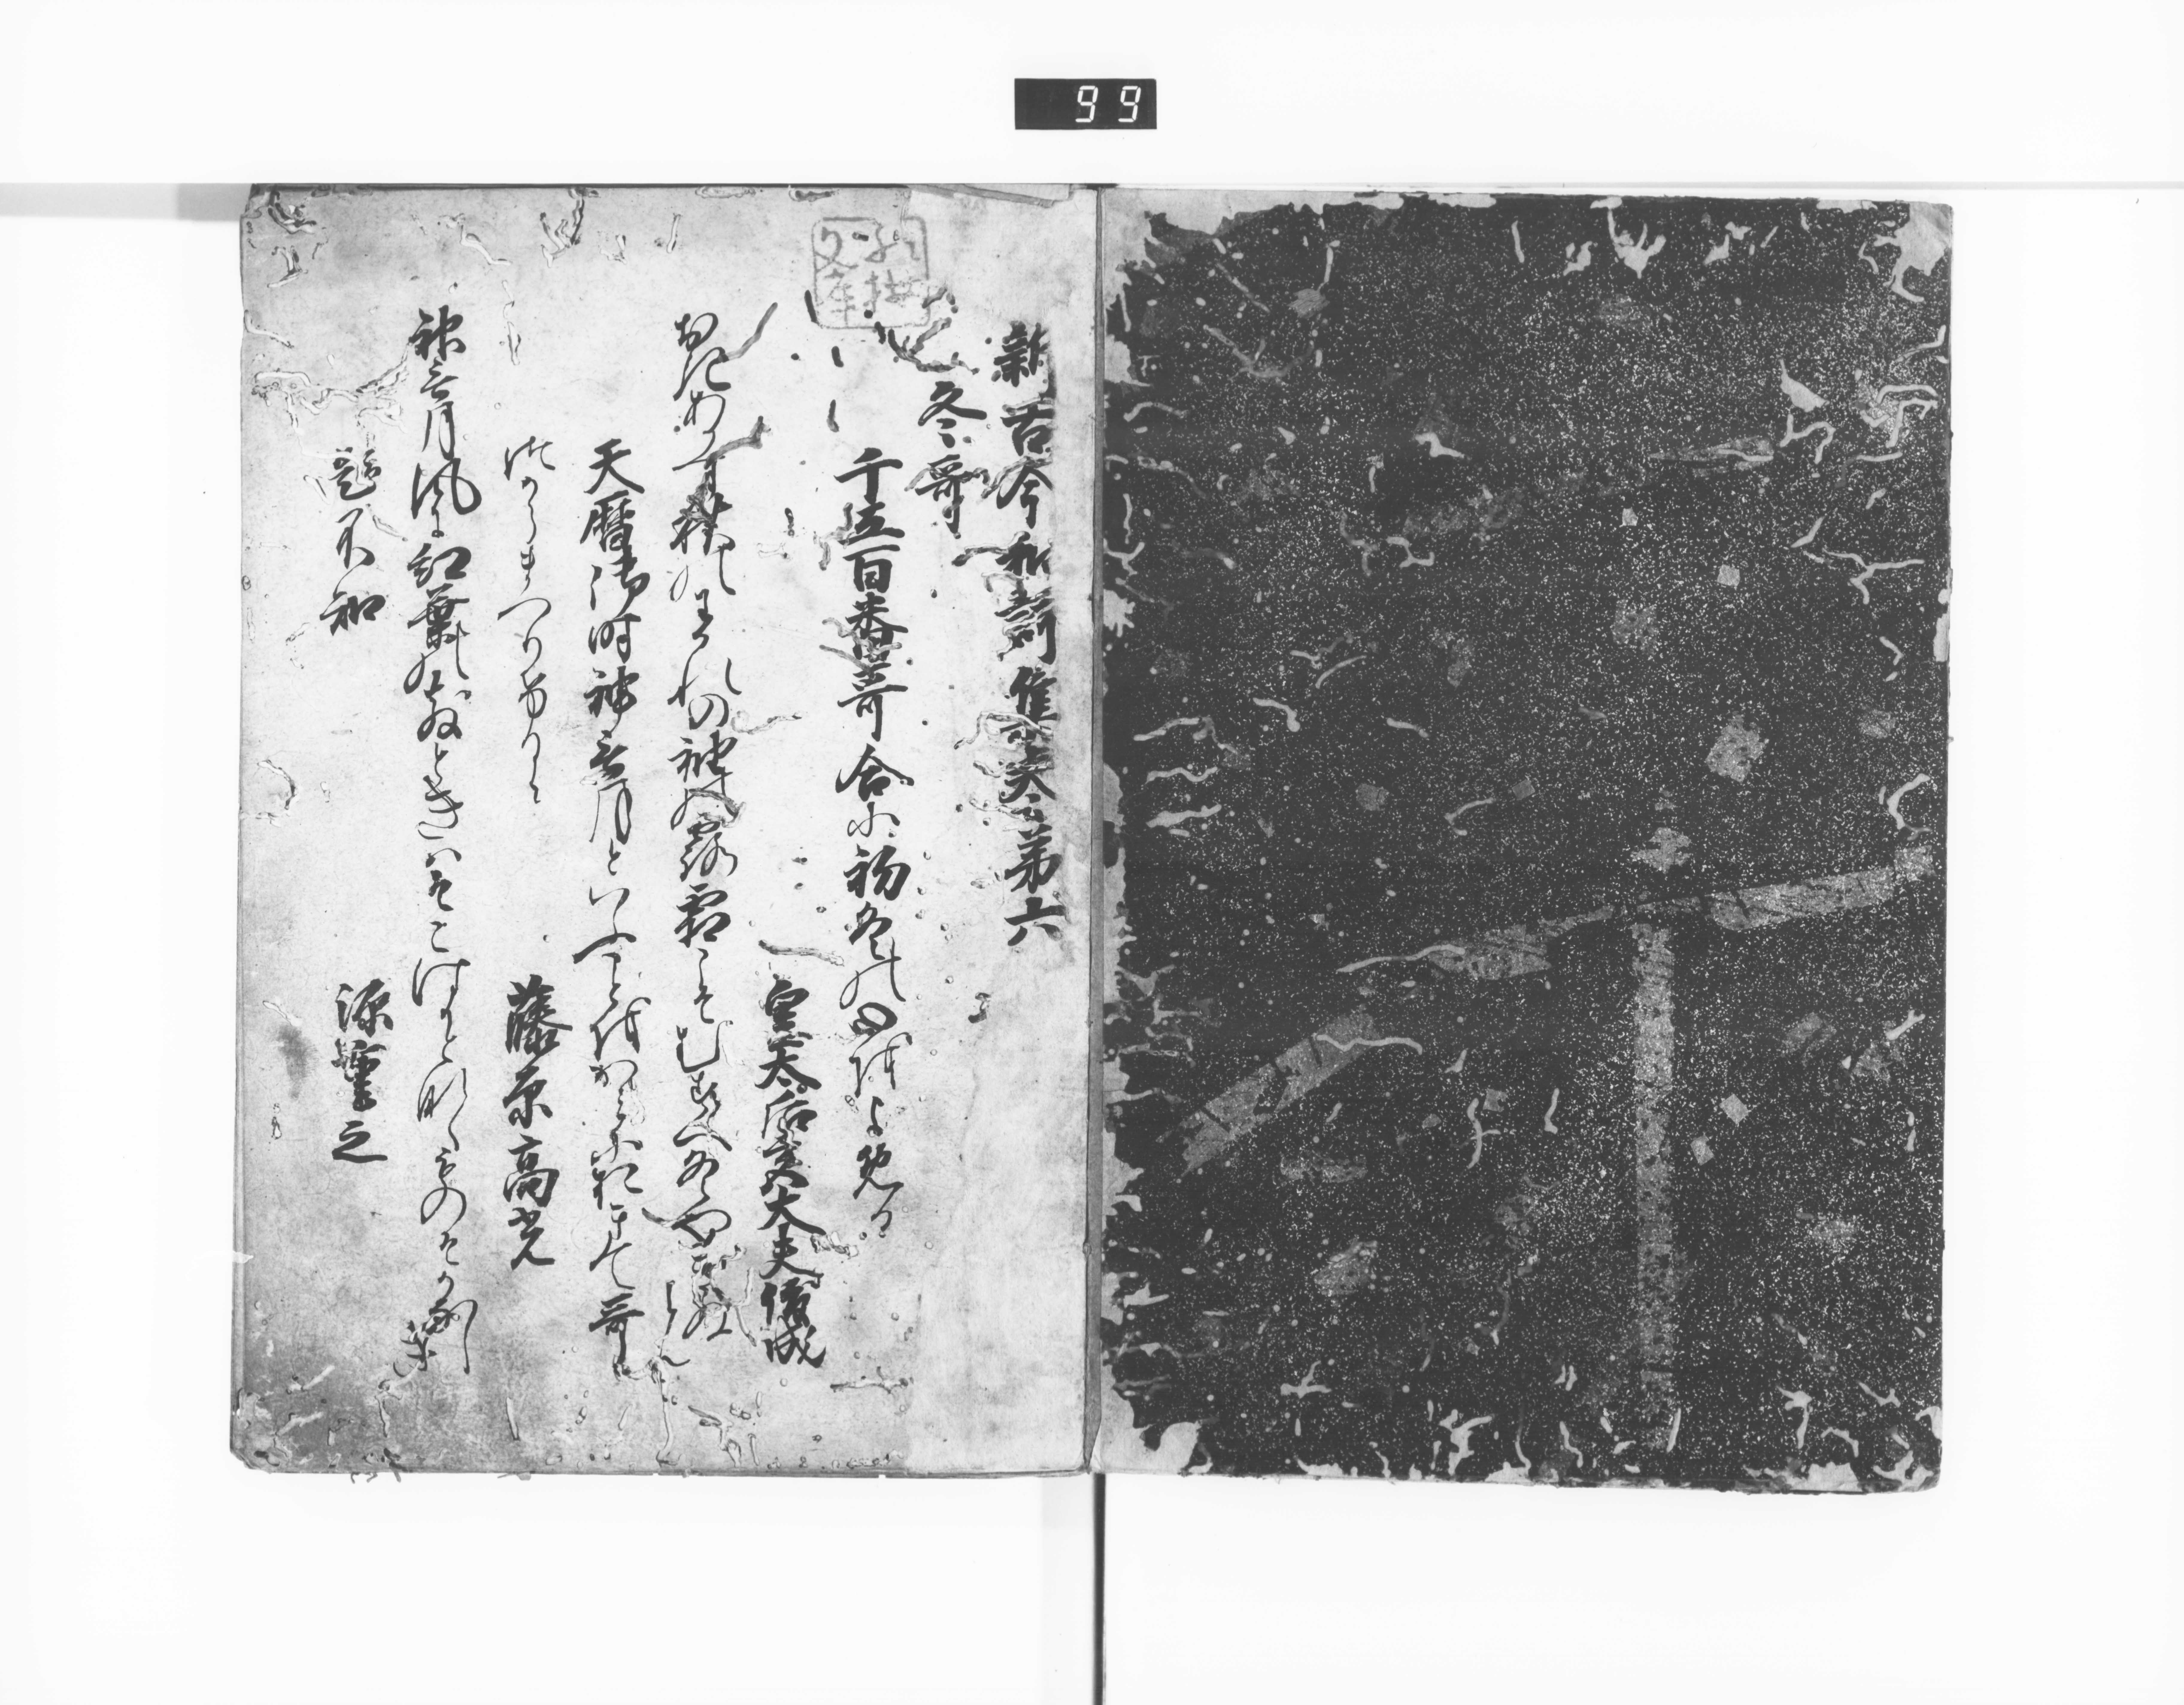 99
新古今和謌集巻第六
冬哥
千五百番哥合に初冬の心を よめる
皇太后宮大夫俊成
おきあかす秋のわかれの袖の露霜こそむすへ冬や来ぬらん
天暦御時神無月といふことを かみにをきて哥
つかうまつりけるに
藤原高光
神無月風に紅葉のちるときはそこはかとなくものそかなしき
題不知
源重之